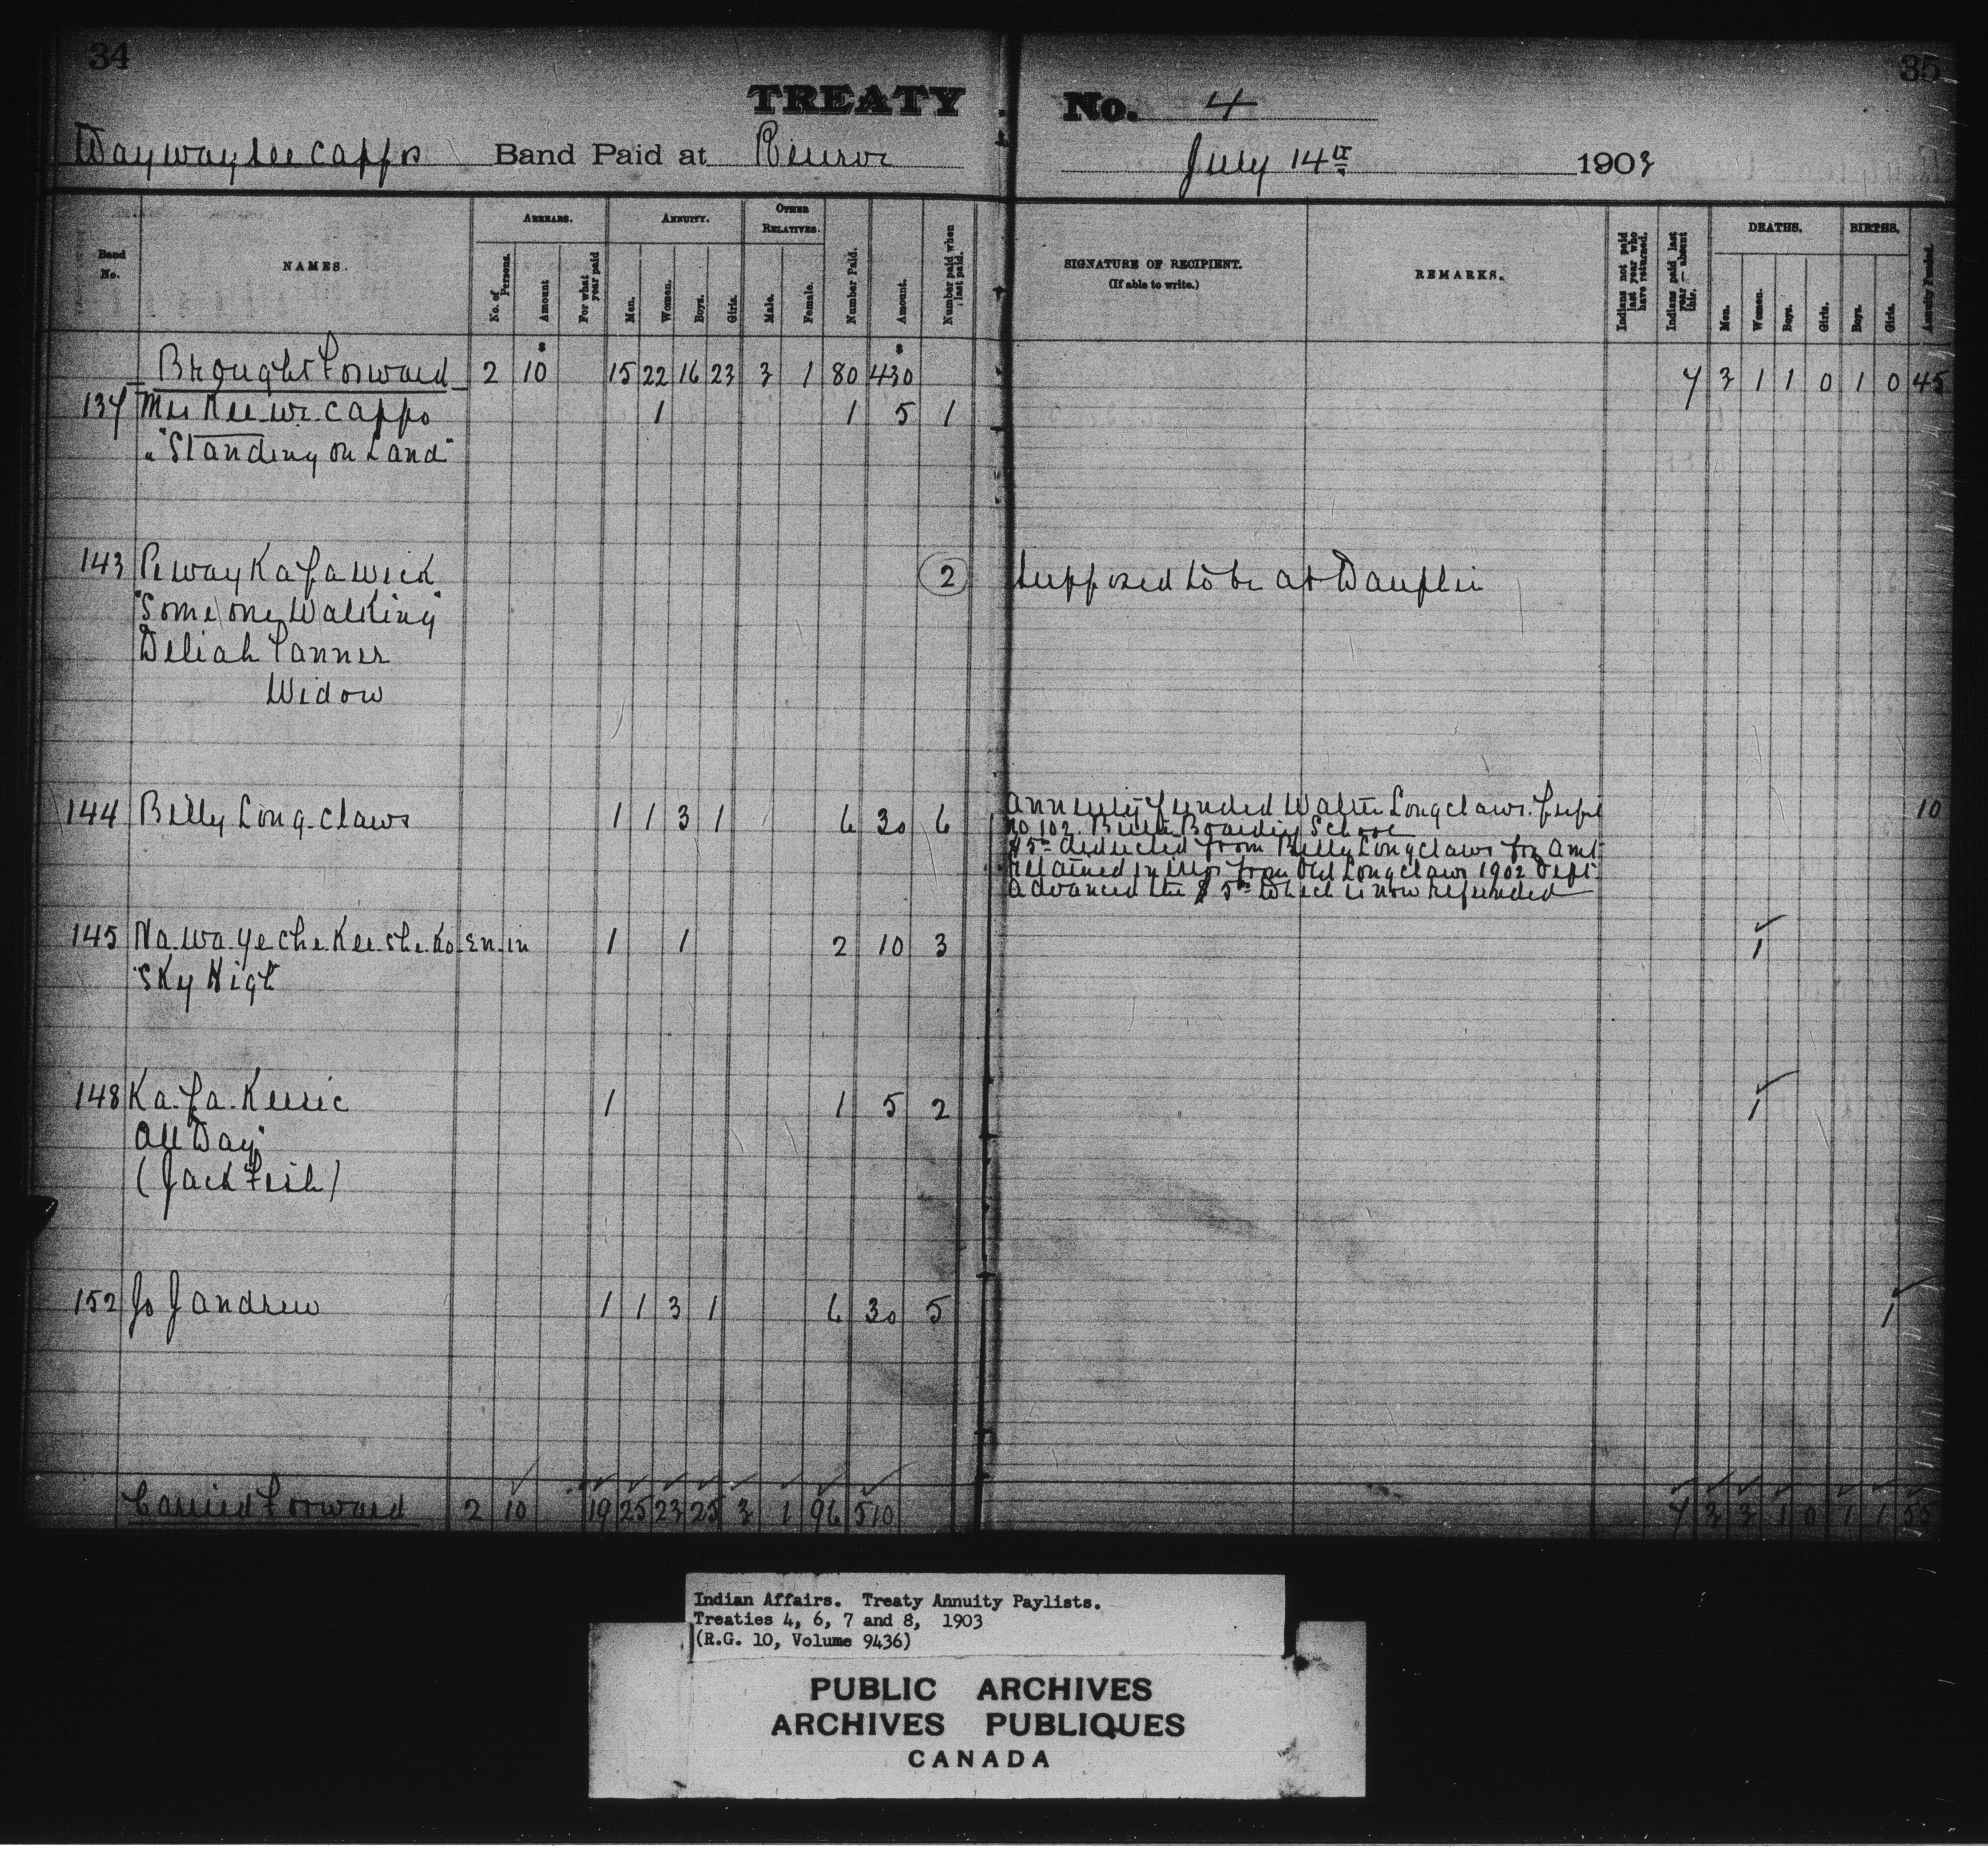 34
35
TREATY No. 4
Waywayseecappo Band Paid at Reserve July 14th 1903
Band No.
NAMES.
ARREARS.
No. of Persons.
Amount
For what year paid
ANNUITY.
Men.
Women.
Boys.
Girls.
OTHER RELATIVES.
Male.
Female.
Number Paid.
Amount.
Number paid when last paid.
SIGNATURE OF RECIPIENT.
(If able to write.)
REMARKS.
Indians not paid last year who have returned.
Indians paid last year — absent this.
DEATHS.
Men.
Women.
Boys.
Girls.
BIRTHS.
Boys.
Girls.
Annuity Funded.
Brought Forward 2 10 15 22 16 23 3 1 80 430 7 3 1 1 0 1 0 45
137 Mis Kee we cappo 1 1 5 1
"Standing on Land"
143 Peway Ka pa wick 2 Supposed to be at Dauphin
"Some one Walking"
Deliah Tanner
Widow
144 Billy Long-claws 1 1 3 1 6 30 6 10
Annuity funded Walter Longclaws. pupil
No 102. Birtle Boarding School
$5 deducted from Billy Longclaws for amt
retained in error from Old Longclaws 1902 Dept.
advanced the $5 which is now refunded
145 Na.wa.ye che.Kee.she.ko.en.in 1 1 2 10 3 1
"Sky High
148 Ka.pa.Keesic 1 1 5 2 1
All Day"
(Jack Fish)
152 Jo Jandrew 1 1 3 1 6 30 5 1
Carried Forward 2 10 19 25 23 25 3 1 96 510 7 3 3 1 0 1 1 55
Indian Affairs. Treaty Annuity Paylists.
Treaties 4, 6, 7 and 8, 1903
(R.G. 10, Volume 9436)
PUBLIC ARCHIVES
ARCHIVES PUBLIQUES
CANADA